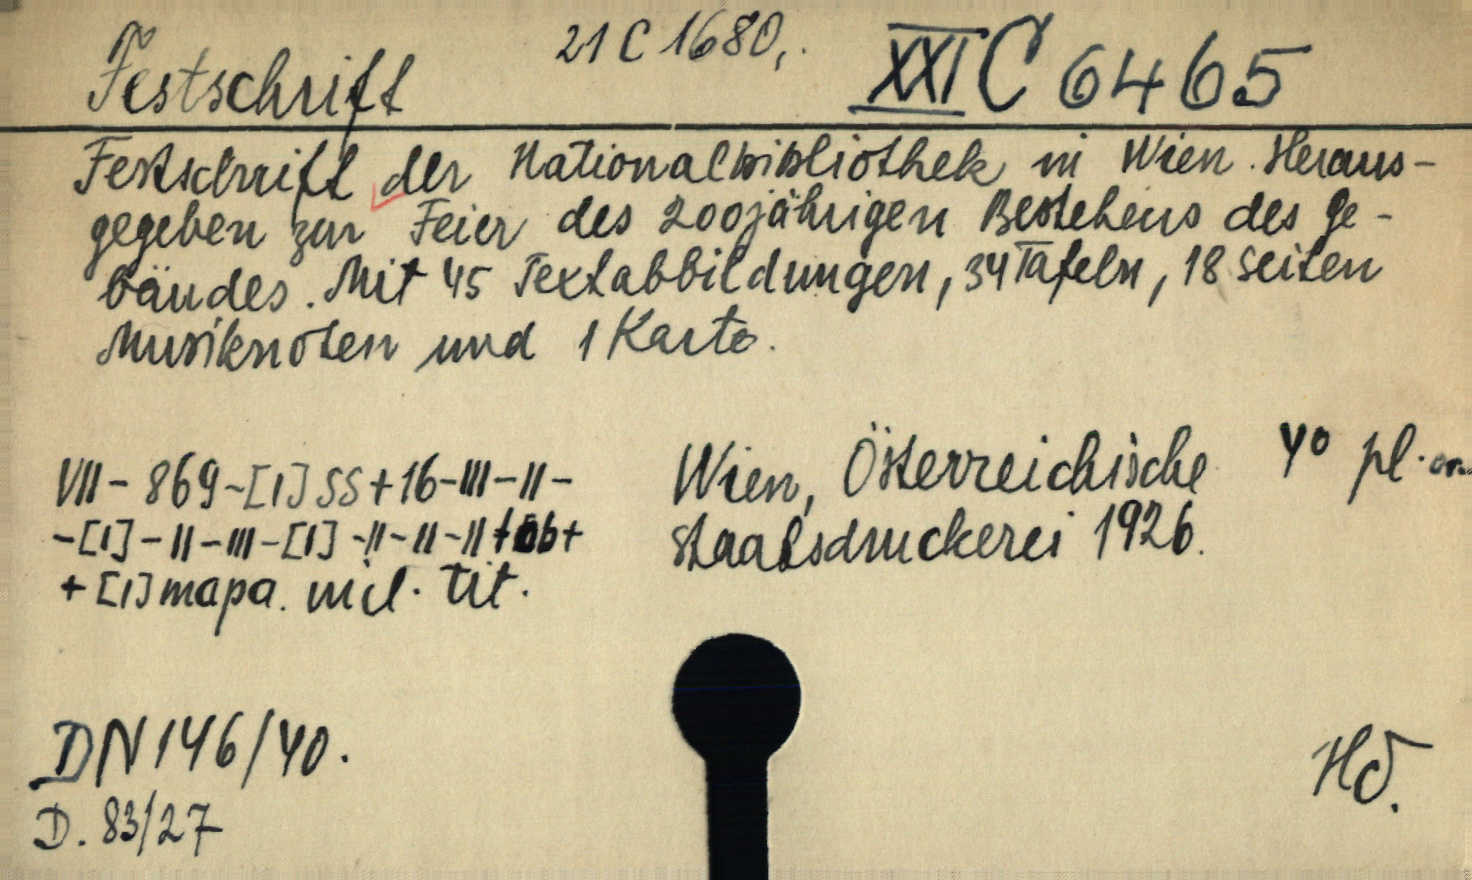 Festschrift 21 C 1680,. XXI C 6465
Festschrift der Nationalbibliothek in Wien. Heraus-
gegeben zur Feier des 200jährigen Bestehens des Ge-
bäudes. Mit 45 Textabbildungen, 34 Tafeln, 18 Seiten
Musiknoten und 1 Karte.
VII - 869 - [1] SS + 16 - III - II -
- [1] - II - III - [1] - II - II - II +
+ [1] mapa. incl. tit.
Wien, Österreichische 4° pl.
Staatsdruckerei 1926.
DN 146/40.
D. 83/27
Hd.